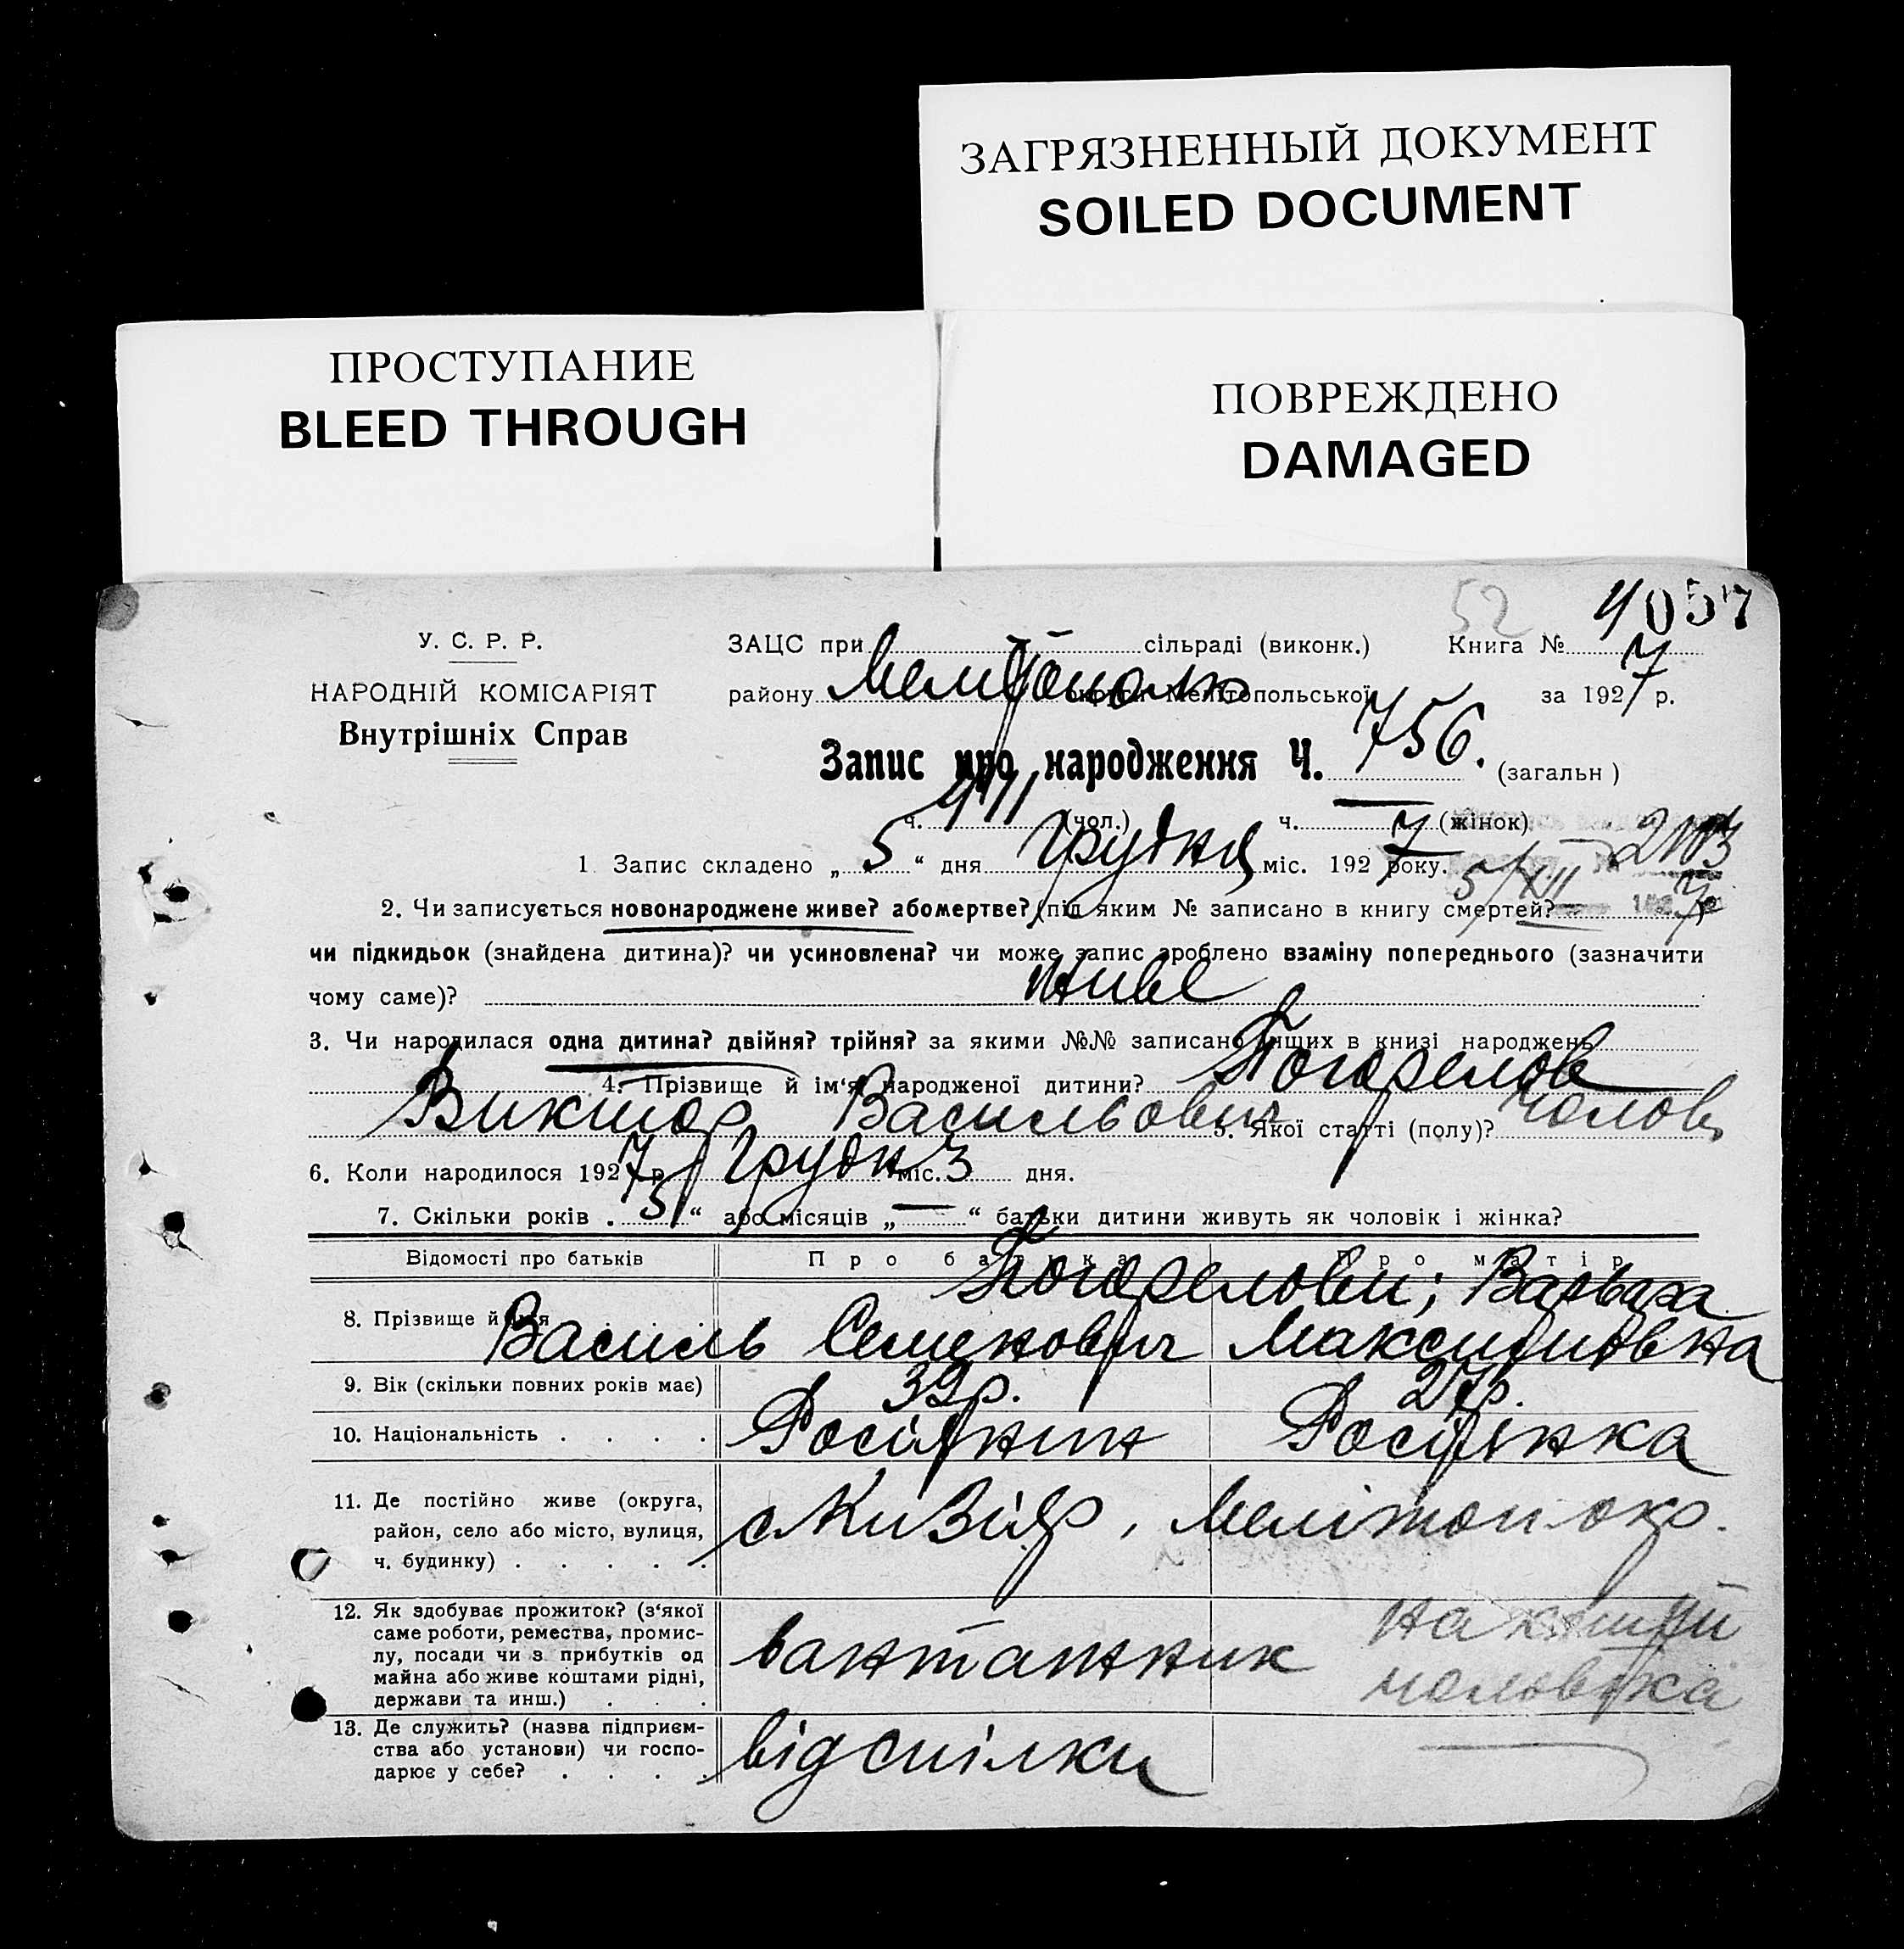 ЗАГРЯЗНЕННЫЙ ДОКУМЕНТ
SOILED DOCUMENT
ПРОСТУПАНИЕ
BLEED THROUGH
ПОВРЕЖДЕНО
DAMAGED
52 4057
У. С. Р. Р.
НАРОДНІЙ КОМІСАРІЯТ
Внутрішніх Справ
ЗАЦС при сільраді (виконк.) Книга №
району округи Мелітопольської за 1927 р.
Запис про народження Ч. 756. (загальн)
ч. (чол.) ч. — (жінок)
1. Запис складено „5“ дня Грудня міс. 1927 року. 5/XII
2. Чи записується новонароджене живе? або мертве? (під яким № записано в книгу смертей?
чи підкидьок (знайдена дитина)? чи усиновлена? чи може запис зроблено взаміну попереднього (зазначити
чому саме)? живе
3. Чи народилася одна дитина? двійня? трійня? за якими №№ записано інших в книзі народжень
4. Прізвище й ім‘я народженої дитини? Погорелов
Виктор Васильович 5. Якої статті (полу)? чолов
6. Коли народилося 1927 р. Грудн міс. 3 дня.
7. Скільки років „5“ або місяців „—“ батьки дитини живуть як чоловік і жінка?
Відомості про батьків Про батька Про матір
8. Прізвище й ім‘я Погорелови; Варвара
Василь Семенович Максимовна
9. Вік (скільки повних років має) 39р. 27р.
10. Національність Росіянин Росіянка
11. Де постійно живе (округа,
район, село або місто, вулиця,
ч. будинку) Мелітоп окр.
12. Як здобуває прожиток? (з‘якої
саме роботи, ремества, промис-
лу, посади чи з прибутків од
майна або живе коштами рідні,
держави та инш.) вантажник чоловіка
13. Де служить? (назва підприєм-
ства або установи) чи госпо-
дарює у себе? від спілки